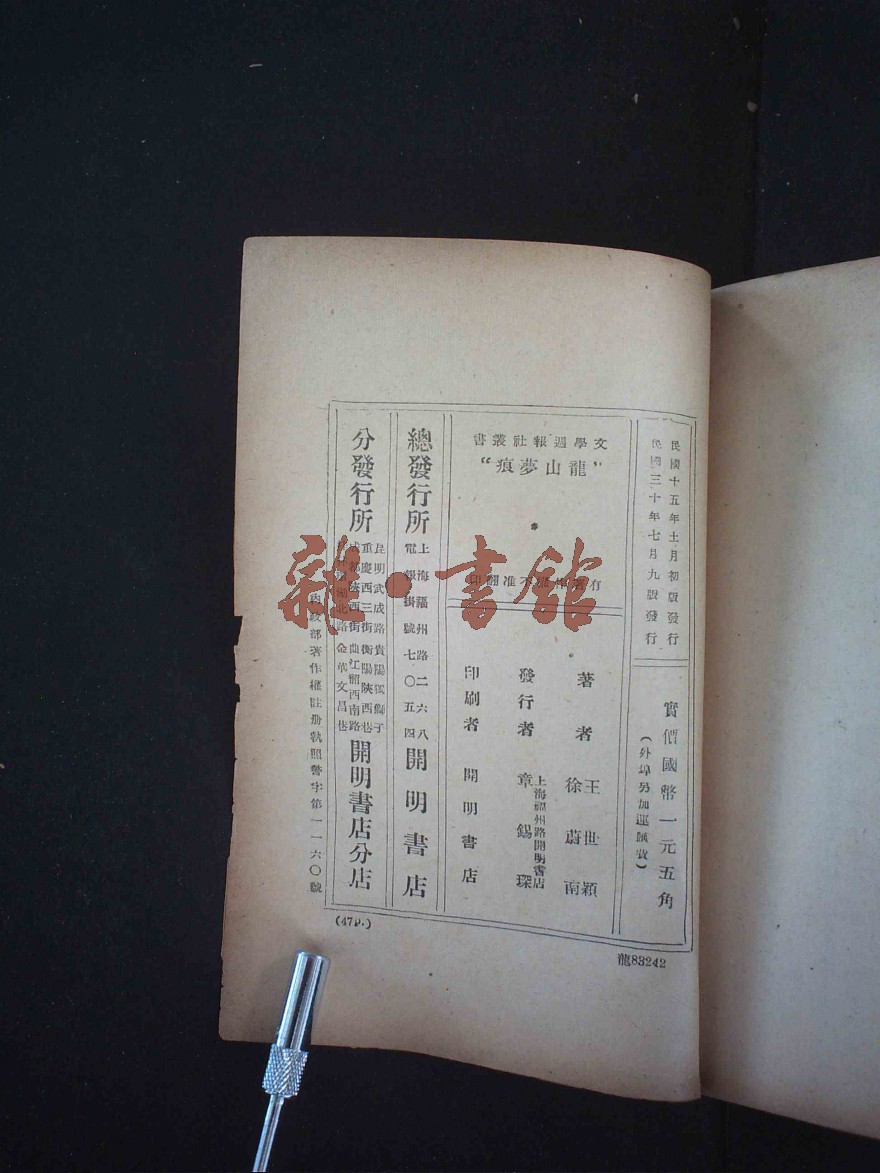 民國十五年十月初版發行
民國三十年七月九版發行
實價國幣一元五角
(外埠另加運匯費)
文學週報社叢書
“龍山夢痕”
有著作權不准翻印
著者
王世穎
徐蔚南
發行者
上海福州路開明書店
章錫琛
印刷者
開明書店
總發行所
上海福州路二六八
電報掛號七〇五四
開明書店
分發行所
昆明武成路 貴陽獅子
重慶西三街 衡陽陝西巷
成都陝西街 曲江韶西南路
湖北路 金華文昌巷
開明書店分店
內政部著作權註册執照警字第一一六〇號
(47P.)
龍83242
雜·書館